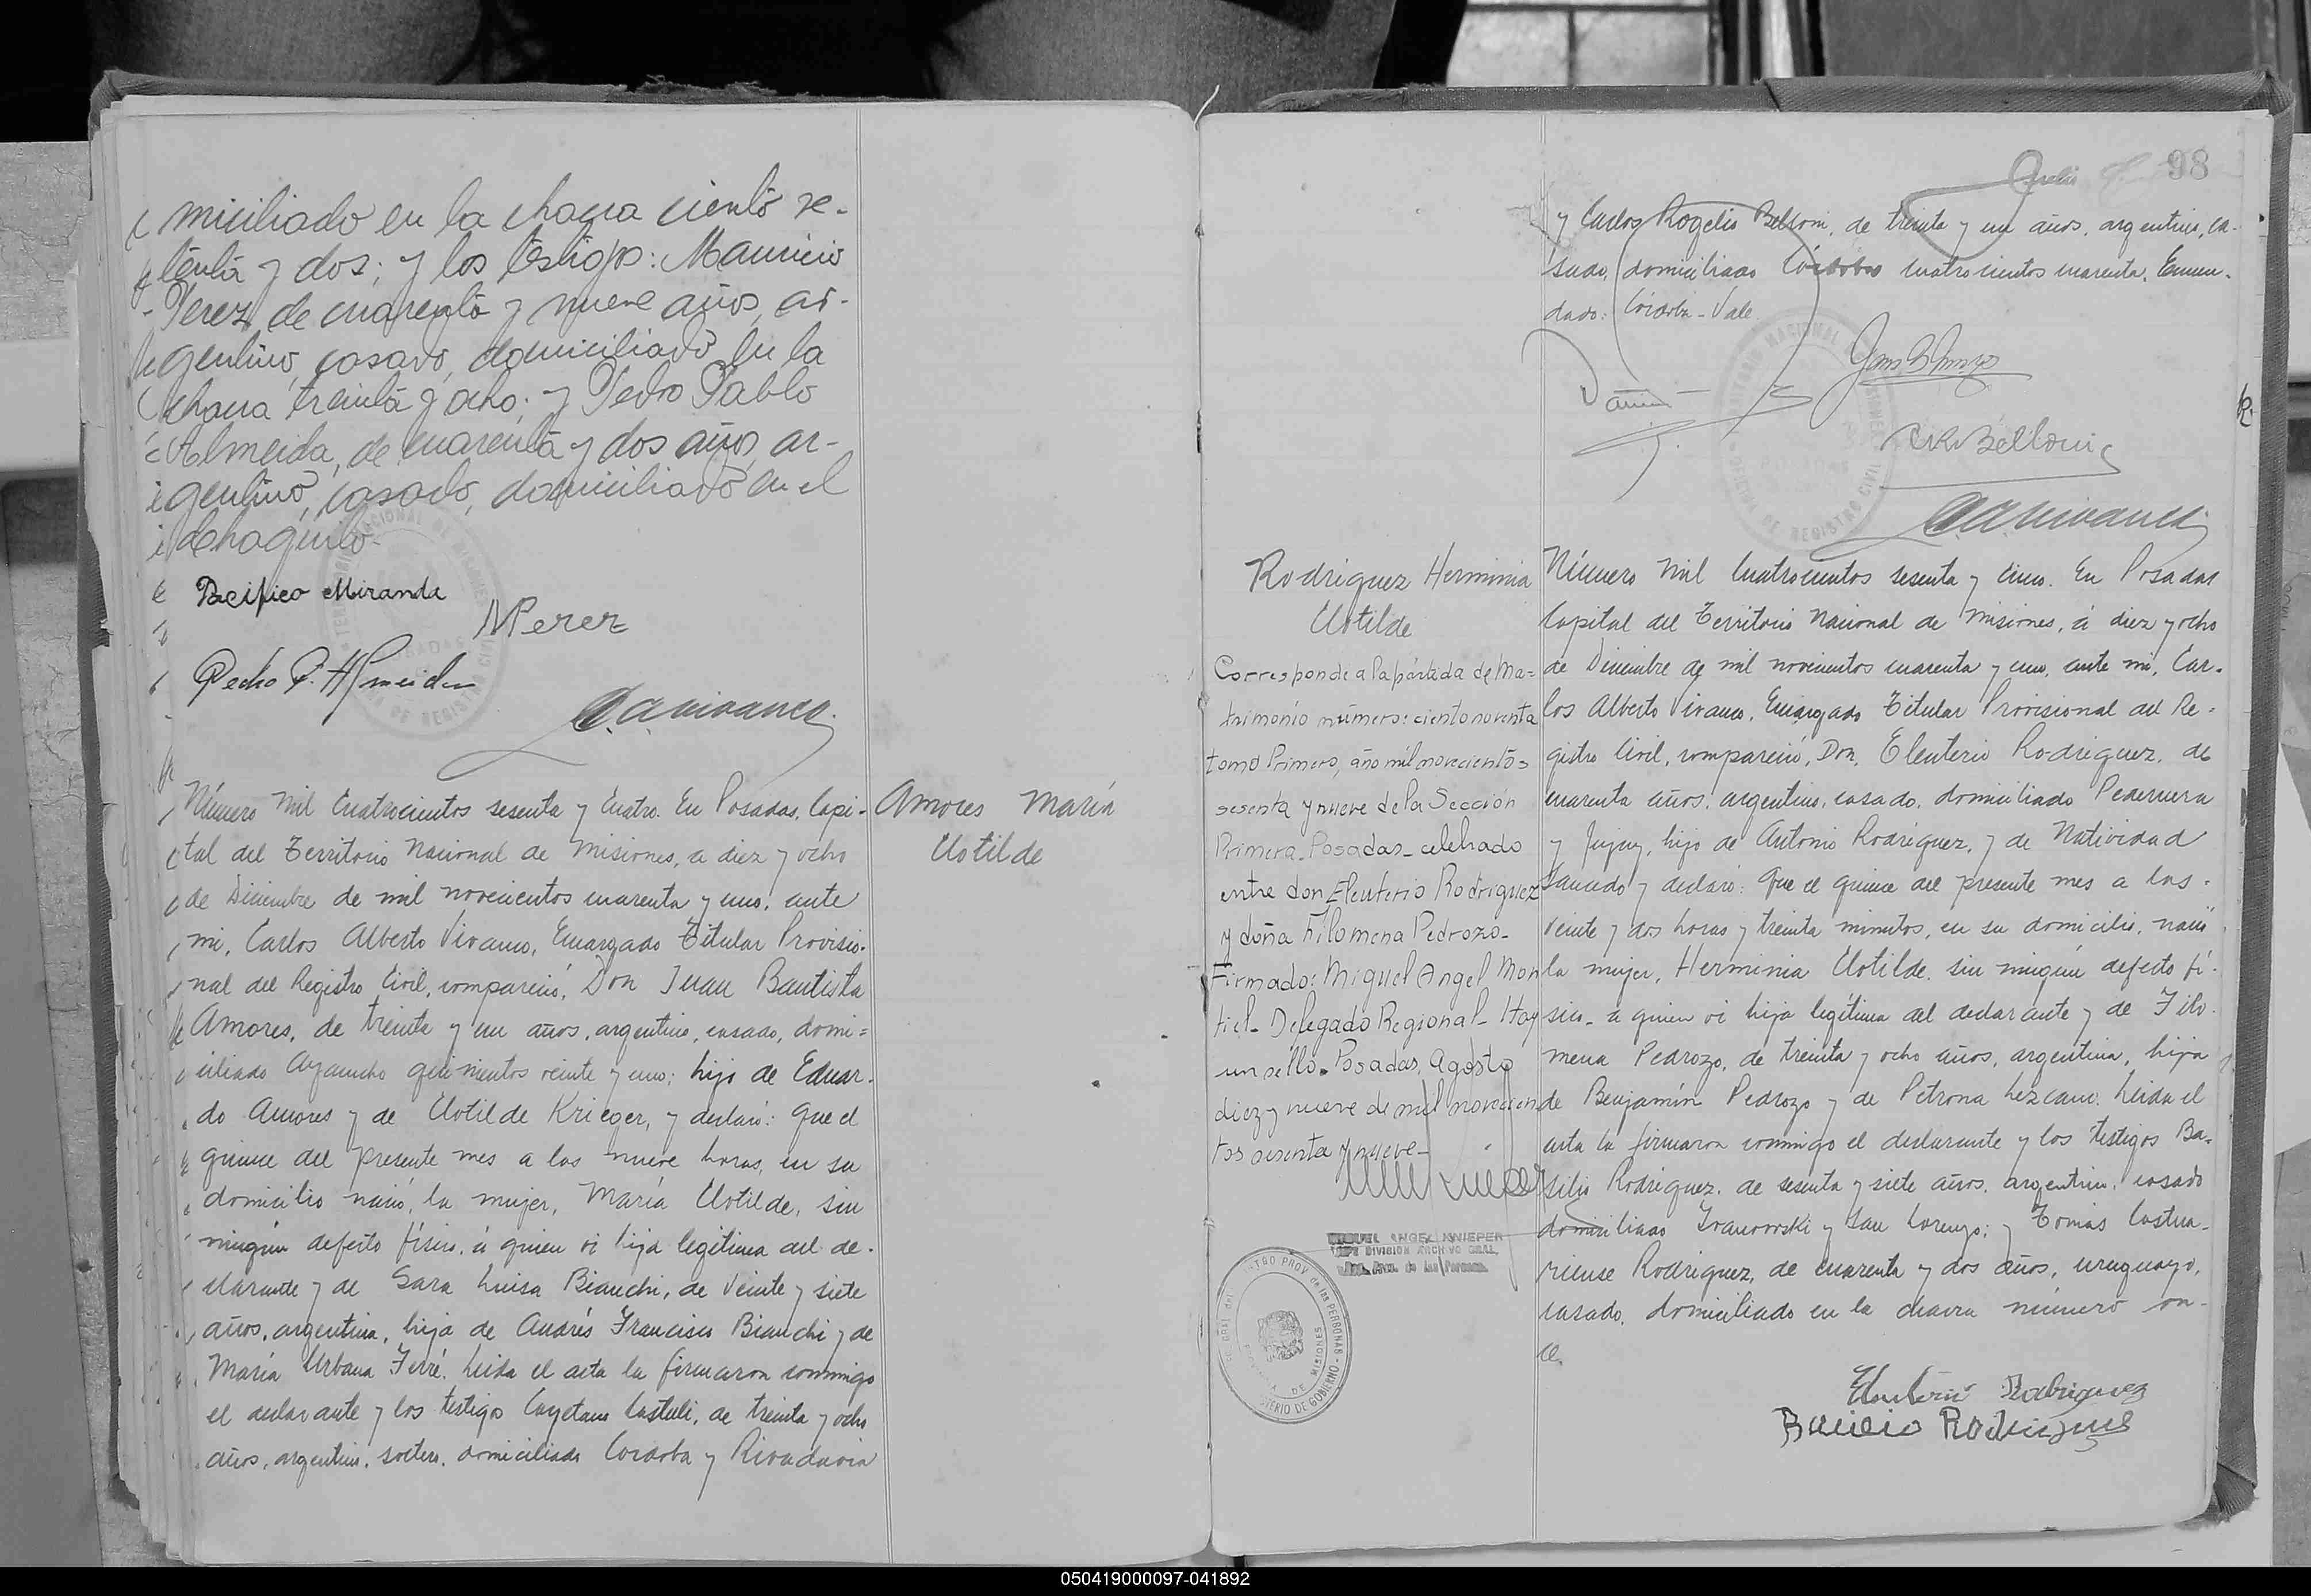 miciliado en la chacra ciento se-
tenta y dos; y los testigos: Mauricio
Perez, de cuarenta y nueve años, ar-
gentino, casado, domiciliado en la
chacra treinta y ocho; y Pedro Pablo
Almeida, de cuarenta y dos años, ar-
gentino, casado, domiciliado en el
chaquito-
Pacifico Miranda
MPerez
Pedro P. Almeida
C.A.Vivanco
Número mil cuatrocientos sesenta y cuatro. En Posadas, Capi-
tal del Territorio Nacional de Misiones, a diez y ocho
de Diciembre de mil novecientos cuarenta y uno, ante
mi, Carlos Alberto Vivanco, Encargado Titular Provisio-
nal del Registro Civil, compareció, Don Juan Bautista
Amores, de treinta y un años, argentino, casado, domi=
ciliado Ayacucho quinientos veinte y uno; hijo de Eduar-
do Amores y de Clotilde Krieger, y declaró: Que el
quince del presente mes a las nueve horas, en su
domicilio nació, la mujer, María Clotilde, sin
ningún defecto físico, á quien vi hija legítima del de-
clarante y de Sara Luisa Bianchi, de veinte y siete
años, argentina, hija de Andrés Francisco Bianchi y de
María Urbana Ferré. Leida el acta la firmaron conmigo
el declarante y los testigos Cayetano Castuli, de treinta y ocho
años, argentino, soltero, domiciliado Cordoba y Rivadavia
Amores María
Clotilde
98
y Carlos Rogelio Belloni, de treinta y un años, argentino, ca-
sado, domiciliado Córdoba cuatrocientos cuarenta. Enmen-
dado: Córdoba - Vale
CRBelloni
C.A.Vivanco
Rodriguez Herminia
Clotilde
Corresponde a la partida de Ma=
trimonio número: ciento noventa
tomo Primero, año mil novecientos
sesenta y nueve de la Sección
Primera-Posadas-celebrado
entre don Eleuterio Rodriguez
y doña Filomena Pedrozo-
Firmado: Miguel Angel Mon
tiel- Delegado Regional- Hay
un sello. Posadas, Agosto
diez y nueve de mil novecien
tos sesenta y nueve-
MIGUEL ANGEL KNIEPER
JEFE DIVISION ARCHIVO GRAL.
Número mil cuatrocientos sesenta y cinco. En Posadas
Capital del Territorio Nacional de Misiones, á diez y ocho
de Diciembre de mil novecientos cuarenta y uno, ante mi, Car-
los Alberto Vivanco, Encargado Titular Provisional del Re-
gistro Civil, compareció, Don, Eleuterio Rodriguez, de
cuarenta años, argentino, casado, domiciliado Pedernera
y Jujuy, hijo de Antonio Rodriguez, y de Natividad
Saucedo y declaró: Que el quince del presente mes a las
veinte y dos horas y treinta minutos, en su domicilio, nació
la mujer, Herminia Clotilde, sin ningún defecto fí-
sico- a quien vi hija legítima del declarante y de Filo-
mena Pedrozo, de treinta y ocho años, argentina, hija
de Benjamín Pedrozo y de Petrona Lezcano. Leida el
acta la firmaron conmigo el declarante y los testigos Ba-
silio Rodriguez, de sesenta y siete años, argentino, casado
domiciliado Ivanowski y San Lorenzo; y Tomás Castua-
riense Rodriguez, de cuarenta y dos años, uruguayo,
casado, domiciliado en la chacra número on-
ce.
Eleuterio Rodriguez
Bacilio Rodriguez
050419000097-041892